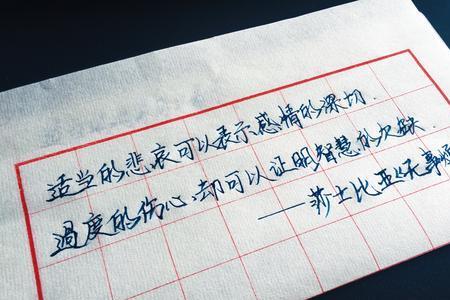 适当的悲哀可以表示感情的深切.
過度的伤心,却可以证明智慧的欠缺
——莎士比亚《无事